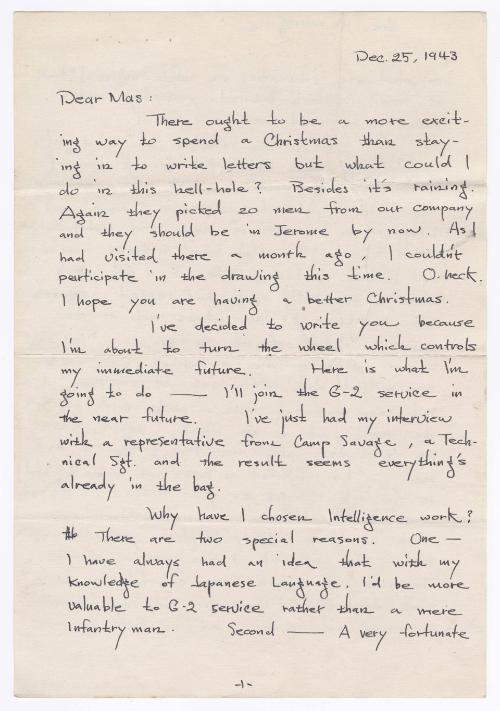 Dec. 25, 1943
Dear Mas:
There ought to be a more excit-
ing way to spend a Christmas than stay-
ing in to write letters but what could I
do in this hell-hole? Besides it's raining.
Again they picked 20 men from our company
and they should be in Jerome by now. As I
had visited there a month ago, I couldn't
participate in the drawing this time. O. heck.
I hope you are having a better Christmas.
I've decided to write you because
I'm about to turn the wheel which controls
my immediate future. Here is what I'm
going to do — I'll join the G-2 service in
the near future. I've just had my interview
with a representative from Camp Savage, a Tech-
nical Sgt. and the result seems everything's
already in the bag.
Why have I chosen Intelligence work?
There are two special reasons. One —
I have always had an idea that with my
knowledge of Japanese Language, I'd be more
valuable to G-2 service rather than a mere
Infantryman. Second — A very fortunate
-1-